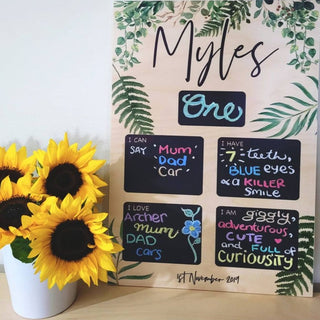 Myles
One
I CAN
SAY Mum
Dad
Car
I HAVE
7 teeths,
BLUE eyes
& a KILLER
smile
I LOVE
Archer
mum
DAD
cars
I AM giggly,
adventurous,
CUTE
and FULL of
CURIOUSITY
1st November 2019